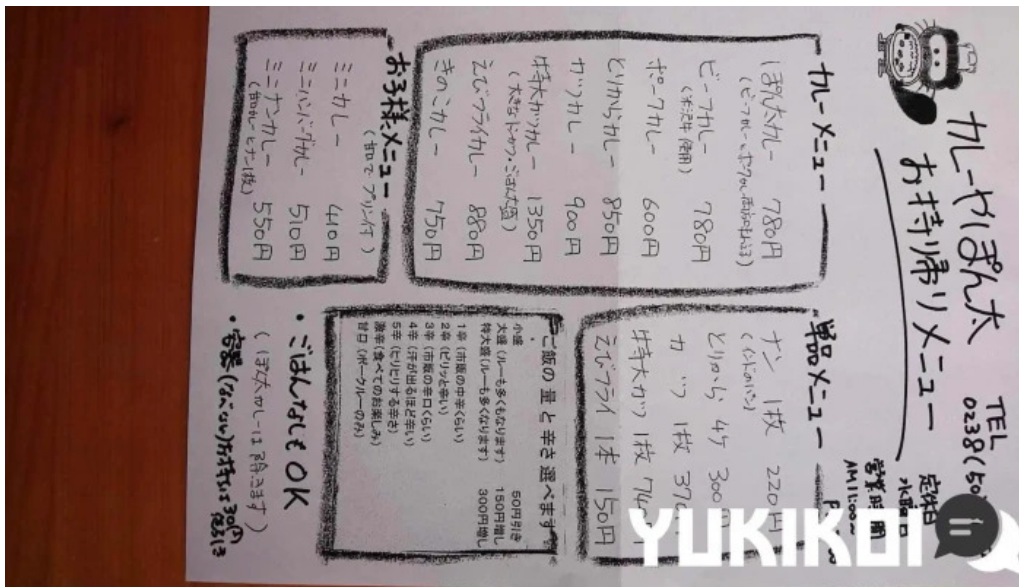 カレーやぽん太
お持ち帰りメニュー
TEL
0238(50
定休日
水曜日
営業時間
AM11:00
カレーメニュー
ぽん太カレー 780円
ビーフカレー 780円
(米沢牛使用)
ポークカレー 600円
とりからカレー 850円
カツカレー 900円
特大カツカレー 1350円
(大きなトンカツ・ごはん大盛)
えびフライカレー 880円
きのこカレー 750円
お子様メニュー
(甘口で プリン付)
ミニカレー 410円
ミニハンバーグカレー 510円
ミニナンカレー 550円
(甘口カレーとナン1枚)
単品メニュー
ナン 1枚 220円
(インドのパン)
とりから 4ケ 300
カツ 1枚 370
特大カツ 1枚 740
えびフライ 1本 150円
ご飯の量と辛さ選べます
小盛 50円引き
大盛(ルーも多くなります) 150円増し
特大盛(ルーも多くなります) 300円増し
1辛(市販の中辛くらい)
2辛(ピリッと辛い)
3辛(市販の辛口くらい)
4辛(汗が出るほど辛い)
5辛(ヒリヒリする辛さ)
激辛(食べてのお楽しみ)
甘口(ポークルーのみ)
・ごはんなしも OK
(ぽん太カレーは除きます)
YUKIKOI